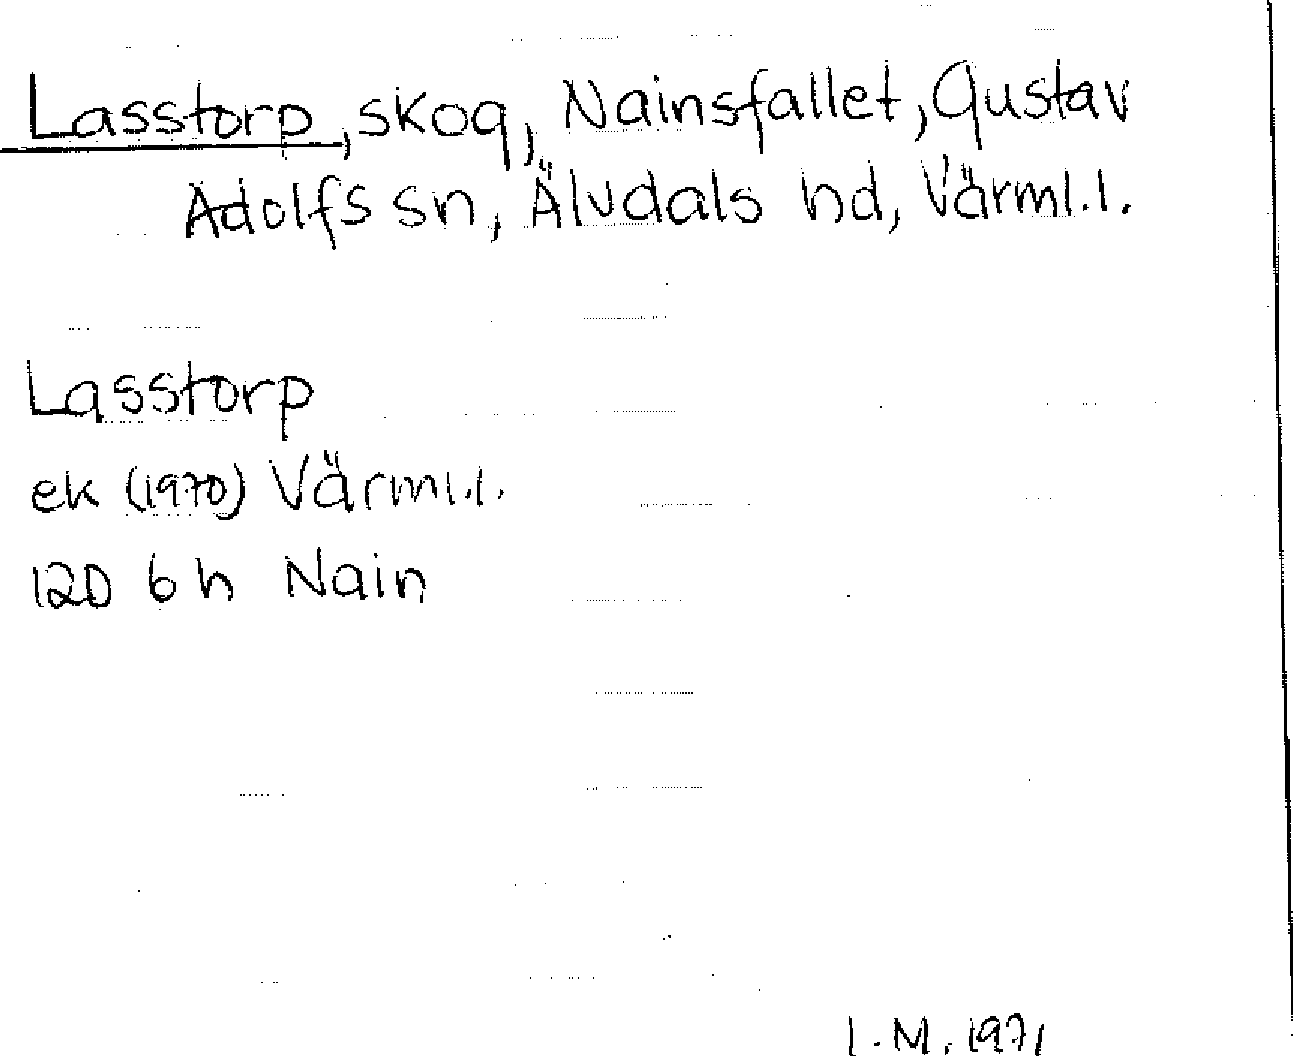 Lasstorp, skog, Nainsfallet, Gustav
Adolfs sn, Älvdals hd, Värml.l.
Lasstorp
ek (1970) Värml.l.
12D 6h Nain
I.M. 1971